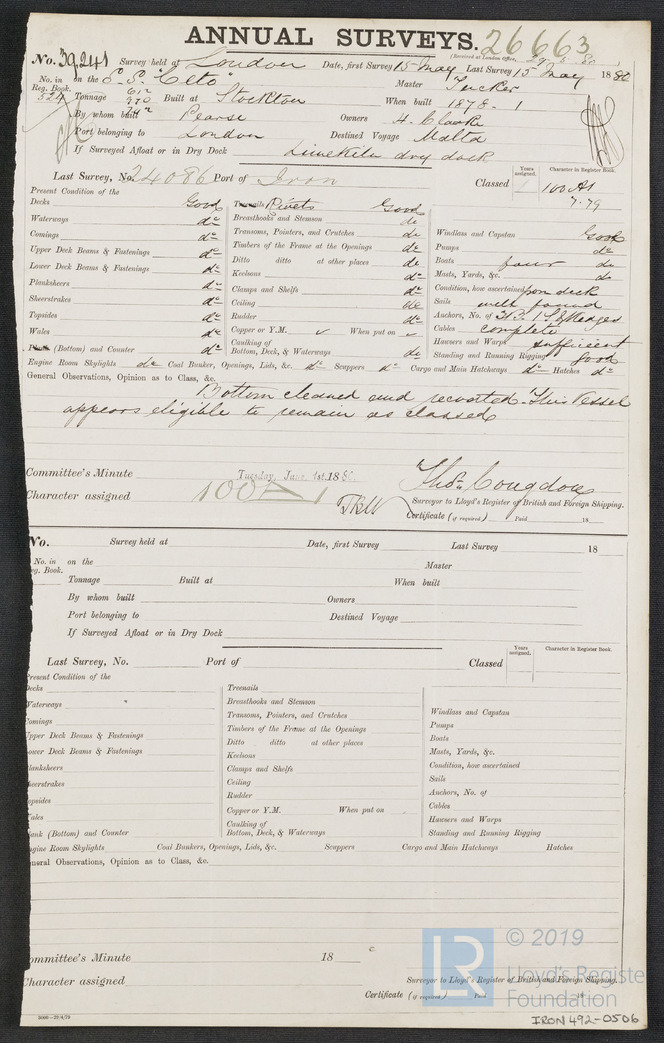 ANNUAL SURVEYS. 26663
(Received at London Office, 29.5.80.)
No. 39,241 Survey held at London Date, first Survey 15 May Last Survey 15 May 1880
No. in Reg. Book. on the S.S. "Ceto" Master Tucker
524 Tonnage 970 Built at Stockton When built 1878 - 1
By whom built Pearse Owners H. Clarke
Port belonging to London Destined Voyage Malta
If Surveyed Afloat or in Dry Dock Limekiln dry dock
Last Survey, No. 24086 Port of Iron Classed 100 A1
Years assigned. Character in Register Book.
7.79
Present Condition of the
Decks Good
Waterways do
Comings do
Upper Deck Beams & Fastenings do
Lower Deck Beams & Fastenings do
Planksheers do
Sheerstrakes do
Topsides do
Wales do
Plank (Bottom) and Counter do
Treenails Rivets Good
Breasthooks and Stemson do
Transoms, Pointers, and Crutches do
Timbers of the Frame at the Openings do
Ditto ditto at other places do
Keelsons do
Clamps and Shelfs do
Ceiling do
Rudder do
Copper or Y.M. When put on
Caulking of Bottom, Deck, & Waterways do
Windlass and Capstan Good
Pumps do
Boats four do
Masts, Yards, &c. do
Condition, how ascertained from deck
Sails well found
Anchors, No. of 3B. 1S. & Kedges
Cables complete
Hawsers and Warps sufficient
Standing and Running Rigging good
Engine Room Skylights do Coal Bunker, Openings, Lids, &c. do Scuppers do Cargo and Main Hatchways do Hatches do
General Observations, Opinion as to Class, &c.
Bottom cleaned and recoated. This Vessel
appears eligible to remain as classed
Committee's Minute Tuesday, June 1st. 1880.
Character assigned 100 A 1
Thos. Congdon
Surveyor to Lloyd's Register of British and Foreign Shipping.
Certificate (if required) Paid 18
No. Survey held at Date, first Survey Last Survey 18
No. in eg. Book. on the Master
Tonnage Built at When built
By whom built Owners
Port belonging to Destined Voyage
If Surveyed Afloat or in Dry Dock
Last Survey, No. Port of Classed
Years assigned. Character in Register Book.
resent Condition of the
ecks
aterways
omings
pper Deck Beams & Fastenings
ower Deck Beams & Fastenings
lanksheers
heerstrakes
opsides
ales
ank (Bottom) and Counter
Treenails
Breasthooks and Stemson
Transoms, Pointers, and Crutches
Timbers of the Frame at the Openings
Ditto ditto at other places
Keelsons
Clamps and Shelfs
Ceiling
Rudder
Copper or Y.M. When put on
Caulking of Bottom, Deck, & Waterways
Windlass and Capstan
Pumps
Boats
Masts, Yards, &c.
Condition, how ascertained
Sails
Anchors, No. of
Cables
Hawsers and Warps
Standing and Running Rigging
ngine Room Skylights Coal Bunkers, Openings, Lids, &c. Scuppers Cargo and Main Hatchways Hatches
eneral Observations, Opinion as to Class, &c.
ommittee's Minute 18
haracter assigned
Surveyor to Lloyd's Register of British and Foreign Shipping.
Certificate (if required) Paid 18
© 2019
LR
Lloyd's Registe
Foundation
IRON 492-0506